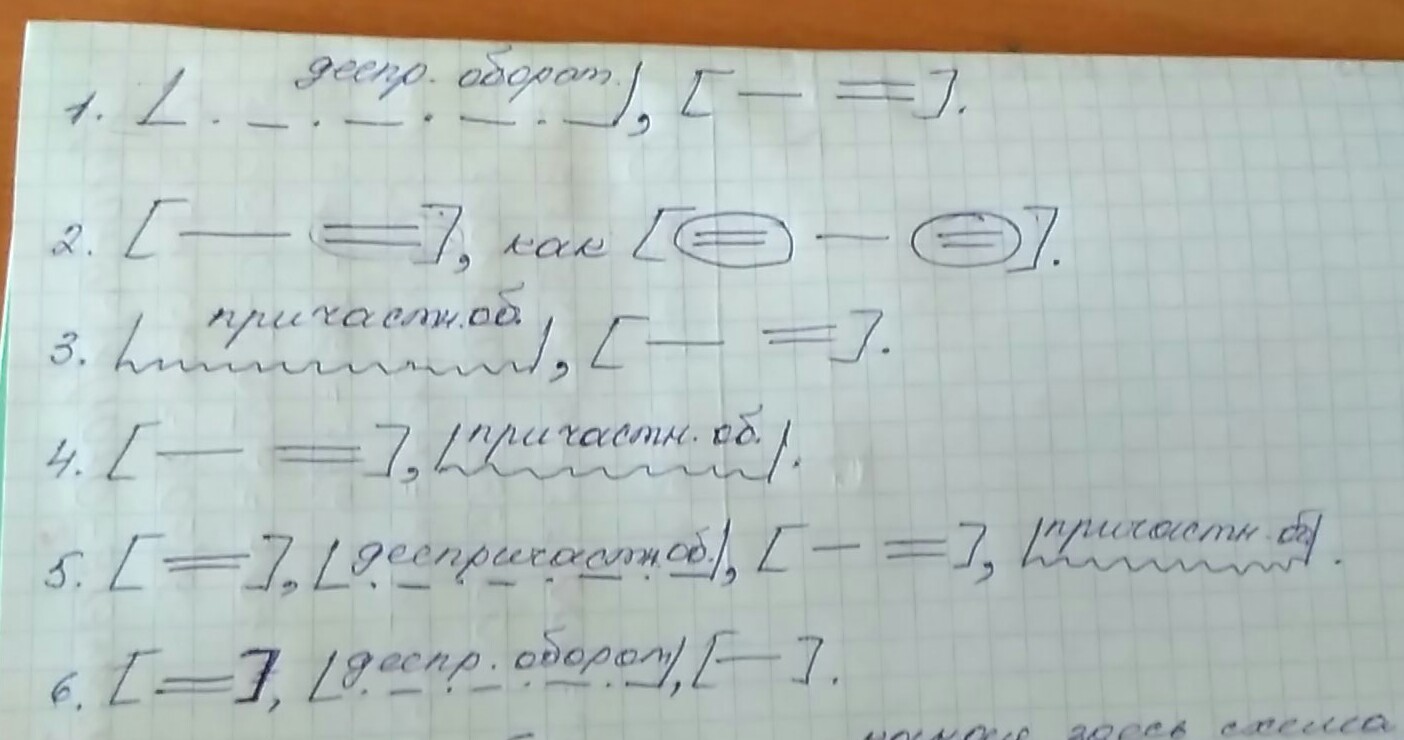 1. |деепр. оборот.|, [— =].
2. [— =], как [= — =].
3. |причастн. об.|, [— =].
4. [— =], |причастн. об.|.
5. [=], |деепричастн. об.|, [— =], |причастн. об.|.
6. [=], |деепр. оборот|, [—].
здесь схема